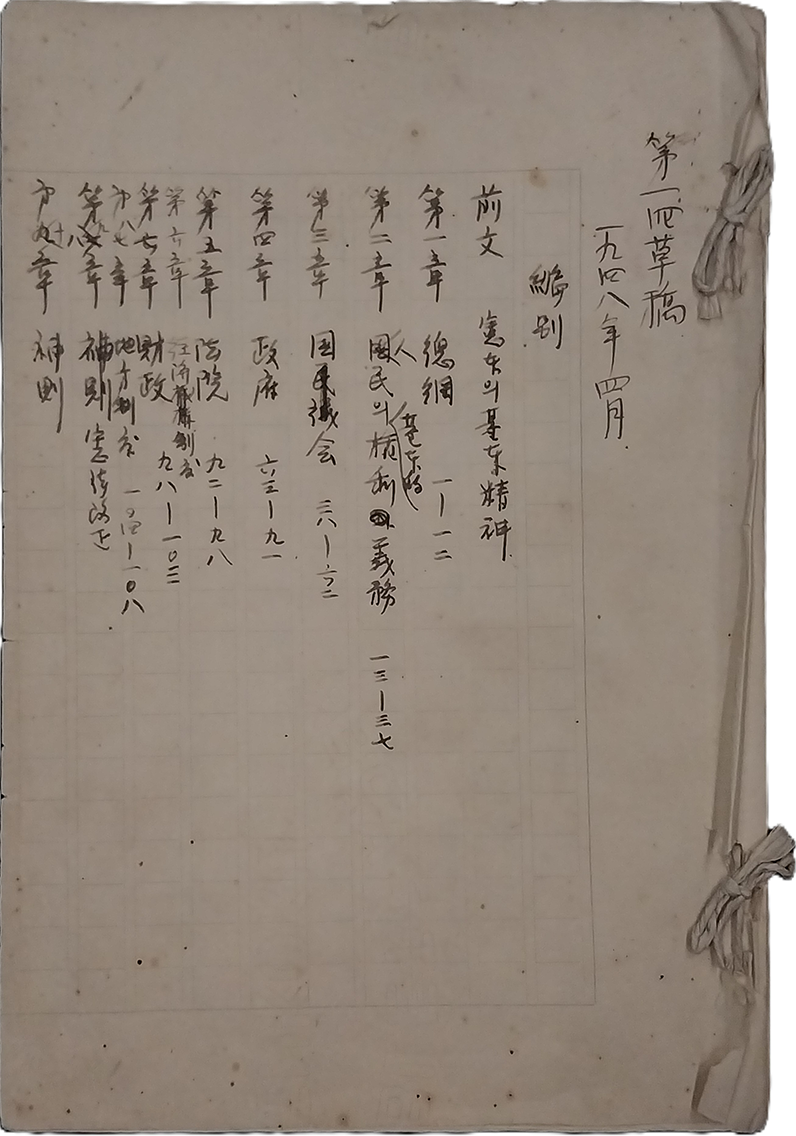 第一回草稿
一九四八年 四月
編別
前文 憲法의基本精神
第一章 總綱 一―一二
第二章 人國民의基本的權利와義務 一三―三七
第三章 国民議会 三八―六二
第四章 政府 六三―九一
第五章 法院 九二―九八
第六章 経済制度
第七章 財政 九八―一〇三
第八章 地方制度 一〇四―一〇八
第九章 補則 憲法改正
第十章 補則